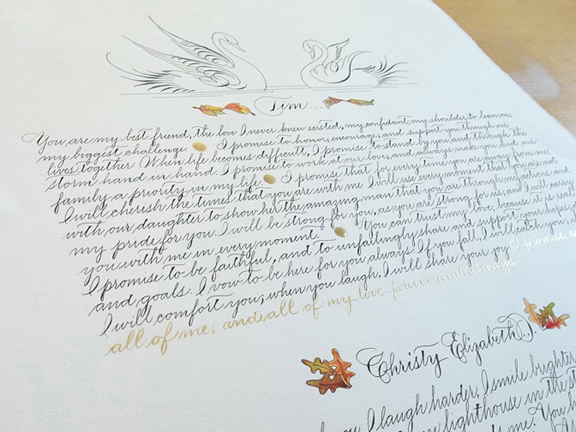 Tim...
You are my best friend, the love I never knew existed, my confidant, my shoulder to lean on,
my biggest challenge I promise to honor, encourage, and support you through our
lives together. When life becomes difficult, I promise to stand by you and through the
storm hand in hand. I promise to work at our love, and always make you and our
family a priority in my life I promise that for every time you are away from me,
I will cherish the times that you are with me. I will use every moment that you are not
with our daughter to show her the amazing man that you are through my actions and
my pride for you. I will be strong for you, as you are strong for us, and I will carry
you with me in every moment. You can trust my love, because it is
I promise to be faithful, and to unfailingly share and support your hopes
and goals. I vow to be here for you always. If you fall, I will catch you
I will comfort you; when you laugh, I will share your joy I promise
all of me, and all of my love forever and always
Christy Elizabeth...
you I laugh harder, I smile brighter
lighthouse in the
me. You